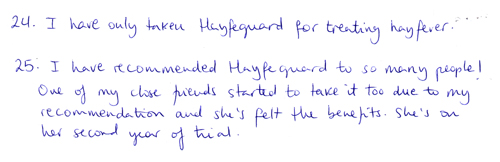 24. I have only taken Hayfeguard for treating hayfever.....
25. I have recommended Hayfeguard to so many people!
One of my close friends started to take it too due to my
recommendation and she's felt the benefits. She's on
her second year of trial.